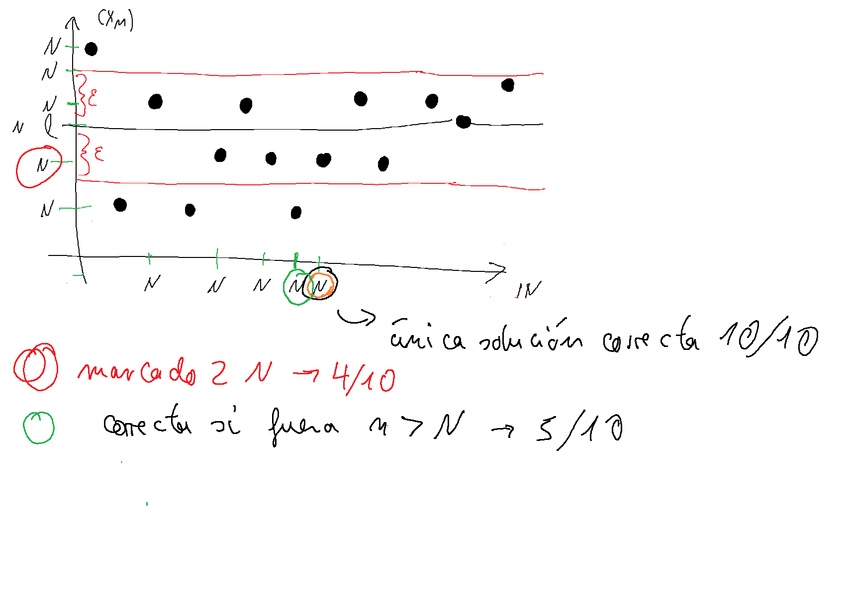 (xₙ)
N
N
ε
N
N l
N
ε
N
N N N N N
IN
única solución correcta 10/10
marcado 2 N → 4/10
correcta si fuera n > N → 5/10